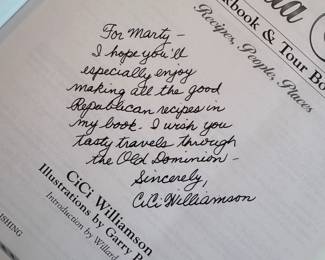 For Marty –
I hope you'll
especially enjoy
making all the good
Republican recipes in
my book. I wish you
tasty travels through
the Old Dominion –
Sincerely,
CiCi Williamson
kbook & Tour Bo
Recipes, People, Places
CiCi Williamson
Illustrations by Garry P
Introduction by Willard
SHING